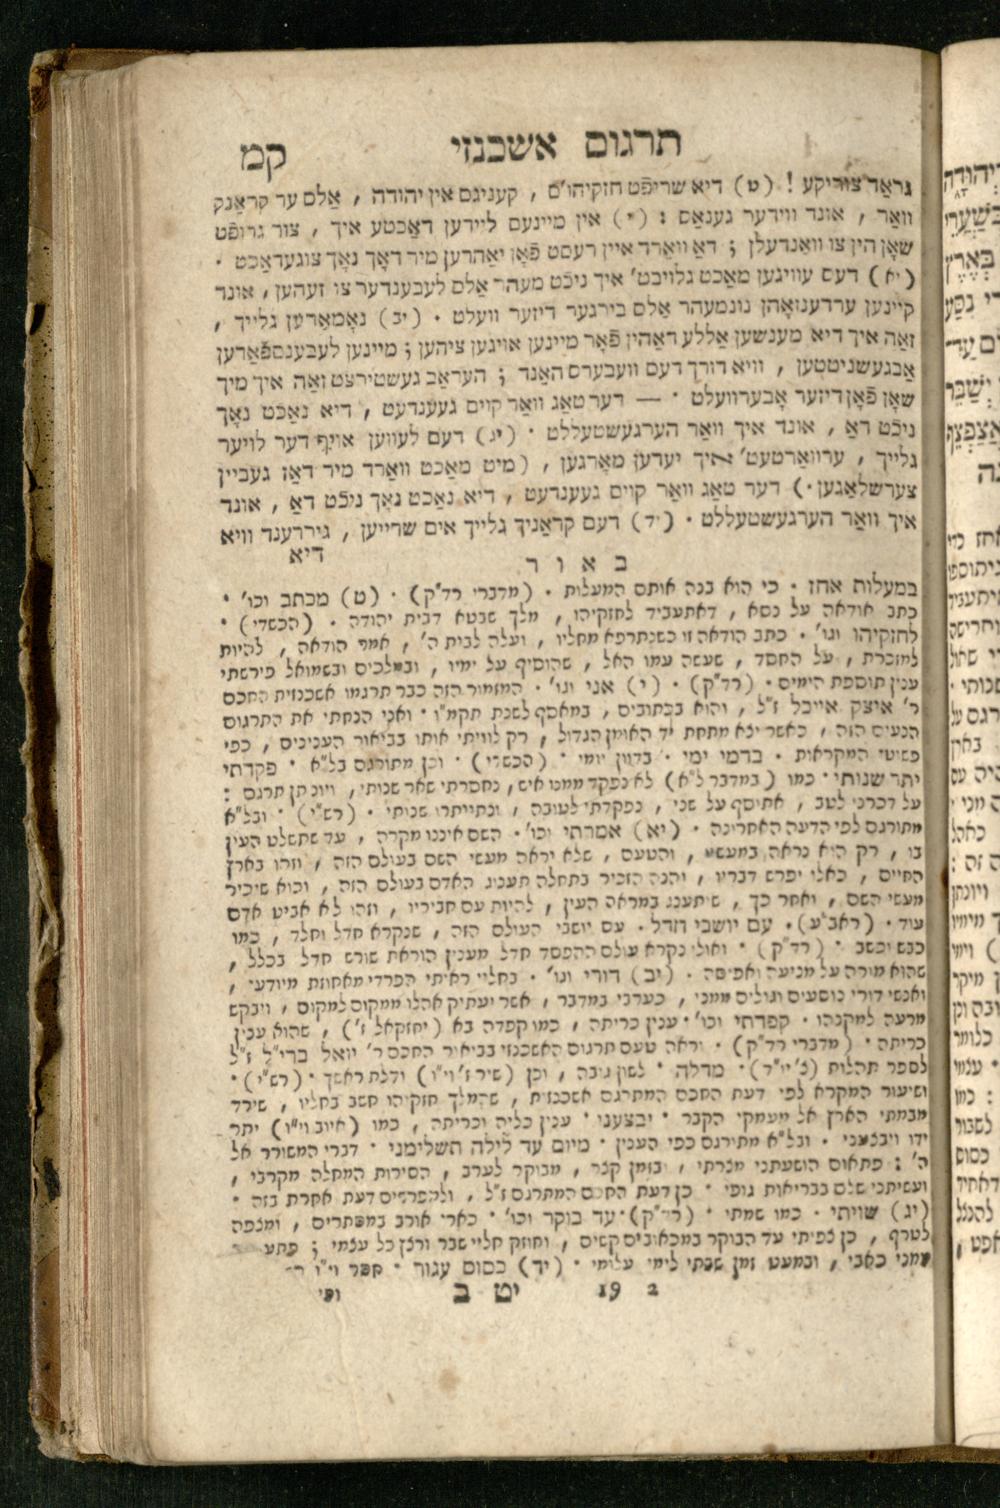 תרגום אשכנזי קמ
גראַד צוריקע ! (ט) דיא שריפֿט חזקיהו״ם , קעניגם אין יהודה , אַלם ער קראַנק
וואַר , אונד ווידער גענאַס : (י) אין מיינעם ליידען דאַכטע איך , צור גרופֿט
שאָן הין צו וואַנדעלן ; דאַ וואַרד איין רעסט פֿאָן יאַהרען מיר דאָך נאָך צוגעדאַכט •
(יא) דעם עוויגען מאַכט גלויבט׳ איך ניכֿט מעהר אַלם לעבענדער צו זעהען , אונד
קיינען ערדענזאָהן נונמעהר אַלם בירגער דיזער וועלט • (יב) נאָמאַדען גלייך ,
זאַה איך דיא מענשען אַללע דאַהין פֿאָר מיינען אויגען ציהען ; מיינען לעבענספֿאַדען
אַבגעשניטטען , וויא דורך דעם וועבערס האַנד ; העראַב געשטירצט זאַה איך מיך
שאָן פֿאָן דיזער אָבערוועלט • — דער טאַג וואַר קוים געענדעט , דיא נאַכֿט נאָך
ניכֿט דאַ , אונד איך וואַר הערגעשטעללט • (יג) דעם לעווען אויף דער לויער
גלייך , ערוואַרטעט׳ איך יעדען מאָרגען , (מיט מאַכט וואַרד מיר דאַז געביין
צערשלאַגען •) דער טאַג וואַר קוים געענדעט , דיא נאַכט נאָך ניכֿט דאַ , אונד
איך וואַר הערגעשטעללט • (יד) דעם קראַניך גלייך אים שרייען , גיררענד וויא
דיא
באור
במעלות אחז • כי הוא בנה אותם המעלות • (מדברי רד״ק) • (ט) מכתב וכו׳ •
כתב אודאה על נסא , דאתעביד לחזקיהו , מלך שבטא דבית יהודה • (הכשדי) •
לחזקיהו וגו׳ • כתב הודאה זו כשנתרפא מחליו , ועלה לבית ה׳ , אמר הודאה , להיות
למזכרת , על החסד , שעשה עמו האל , שהוסיף על ימיו , ובמלכים ובשמואל פירשתי
ענין תוספת הימים • (רד״ק) • (י) אני וגו׳ • המזמור הזה כבר תרגמו אשכנזית החכם
ר׳ איצק אייכל ז״ל , והוא בכתובים , במאסף לשנת תקמ״ו • ואני הנחתי את התרגום
הנעים הזה , כאשר יצא מתחת יד האומן הגדול , רק לויתי אותו בביאור הענינים , כפי
פשוטי המקראות • בדמי ימי • בדוון יומי • (הכשדי) • וכן מתורגם בל״א • פקדתי
יתר שנותי • כמו (במדבר ל״א) לא נפקד ממנו איש , נחסרתי שאר שנותי , ויונתן תרגם :
על דכרני לטב , אתוסף על שני , נפקדתי לטובה , ונתייתרו שנותי • (רש״י) • ובל״א
מתורגם לפי הדעה האחרונה • (יא) אמרתי וכו׳ • השם איננו מקרה , עד שתשלט העין
בו , רק הוא נראה במעשיו , והטעם , שלא יראה מעשי השם בעולם הזה , וזהו בארץ
החיים , כאלו יפרש דבריו , והנה הזכיר בתחלה תענוג האדם בעולם הזה , והוא שיכיר
מעשי השם , ואחר כך , שיתענג במראה העין , להיות עם חביריו , וזהו לא אביט אדם
עוד • (ראב״ע) • עם יושבי חדל • עם יושבי העולם הזה , שנקרא חדל וחלד , כמו
כבש וכשב • (רד״ק) • ואולי נקרא עולם ההפסד חדל מענין הוראת שורש חדל בכלל ,
שהוא מורה על מניעה ואפיסה • (יב) דורי וגו׳ • בחליי ראיתי הפרדי מאחוזת מיודעי ,
ואנשי דורי נוסעים וגולים ממני , כערבי במדבר , אשר יעתיק אהלו ממקום למקום , ויבקש
מרעה למקנהו • קפדתי וכו׳ • ענין כריתה , כמו קפדה בא (יחזקאל ז׳) , שהוא ענין
כריתה • (מדברי רד״ק) • וראה טעם תרגום האשכנזי בביאור החכם ר׳ יואל ברי״ל ז״ל
לספר תהלות • מדלה • לשון גובה , וכן (שיר ז׳ וי״ו) ודלת ראשך • (רש״י) •
ושיעור המקרא לפי דעת החכם המתרגם אשכנזית , שהמלך חזקיהו חשב בחליו , שירד
מבמתי הארץ אל מעמקי הקבר • יבצעני • ענין כליה וכריתה , כמו (איוב וי״ו) יתר
ידו ויבצעני • ובל״א מתורגם כפי הענין • מיום עד לילה תשלימני • דברי המשורר אל
ה׳ : פתאום הושעתני מצרתי , בזמן קצר , מבוקר לערב , הסירות המחלה מקרבי ,
ועשיתני שלם בבריאות גופי • כן דעת החכם המתרגם ז״ל , ולהפרשים דעת אחרת בזה •
(יג) שויתי • כמו שמתי • (רד״ק) • עד בוקר וכו׳ • כארי אורב במסתרים , ומצפה
לטרף , כן צפיתי עד הבוקר במכאובים קשים , וחוזק חליי שבר ורצץ כל עצמי ; פתע
ממני כאבי , ובמעט זמן שבתי לימי עלומי • (יד) כסוס עגור • חסר וי״ו
19 2 יט ב וכי